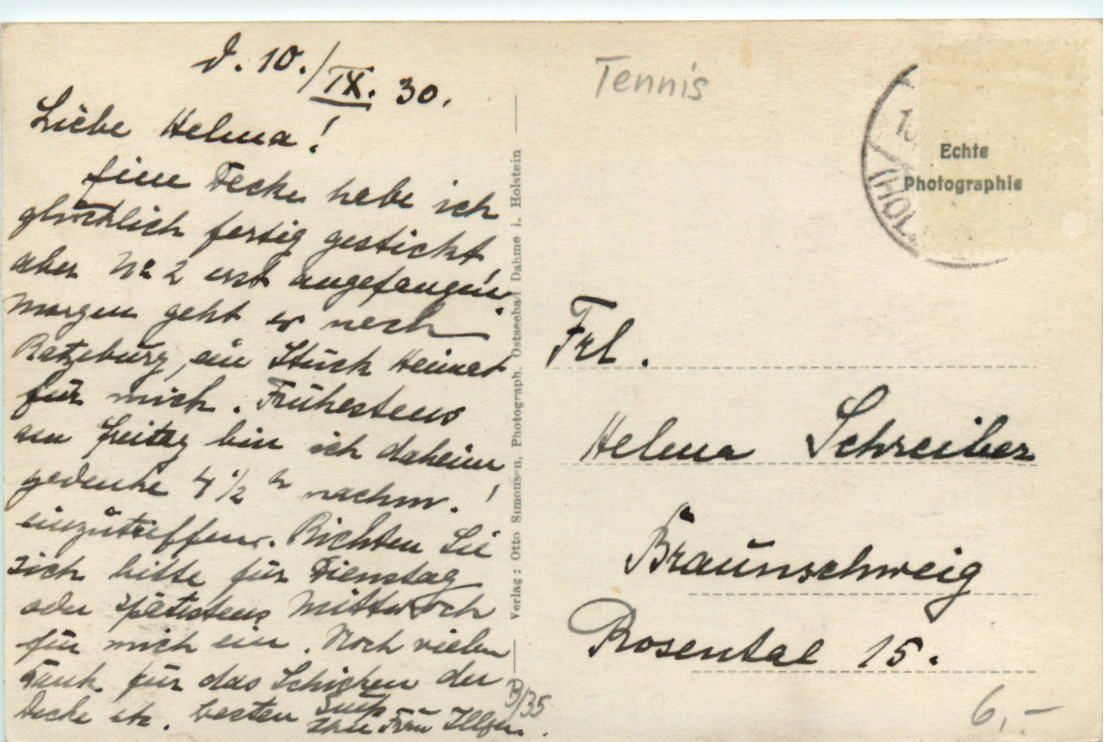 D. 10./IX. 30.
Liebe Helma!
Eine Decke habe ich
glücklich fertig gestickt
aber No 2 erst angefangen!
Morgen geht es nach
Ratzeburg, ein Stück Heimat
für mich. Frühestens
am Freitag bin ich daheim,
gedenke 4 1/2 h nachm.!
einzutreffen. Richten Sie
sich bitte für Dienstag
oder spätestens Mittwoch
für mich ein. Noch vielen
Dank für das Schicken der
Decke etc. besten Gruß
Ihre Frau
B/35
Verlag: Otto Simonsen, Photograph. Ostseebad Dahme i. Holstein
Tennis
Echte
Photographie
(HOL
Frl.
Helma Schreiber
Braunschweig
Rosental 15.
6,-